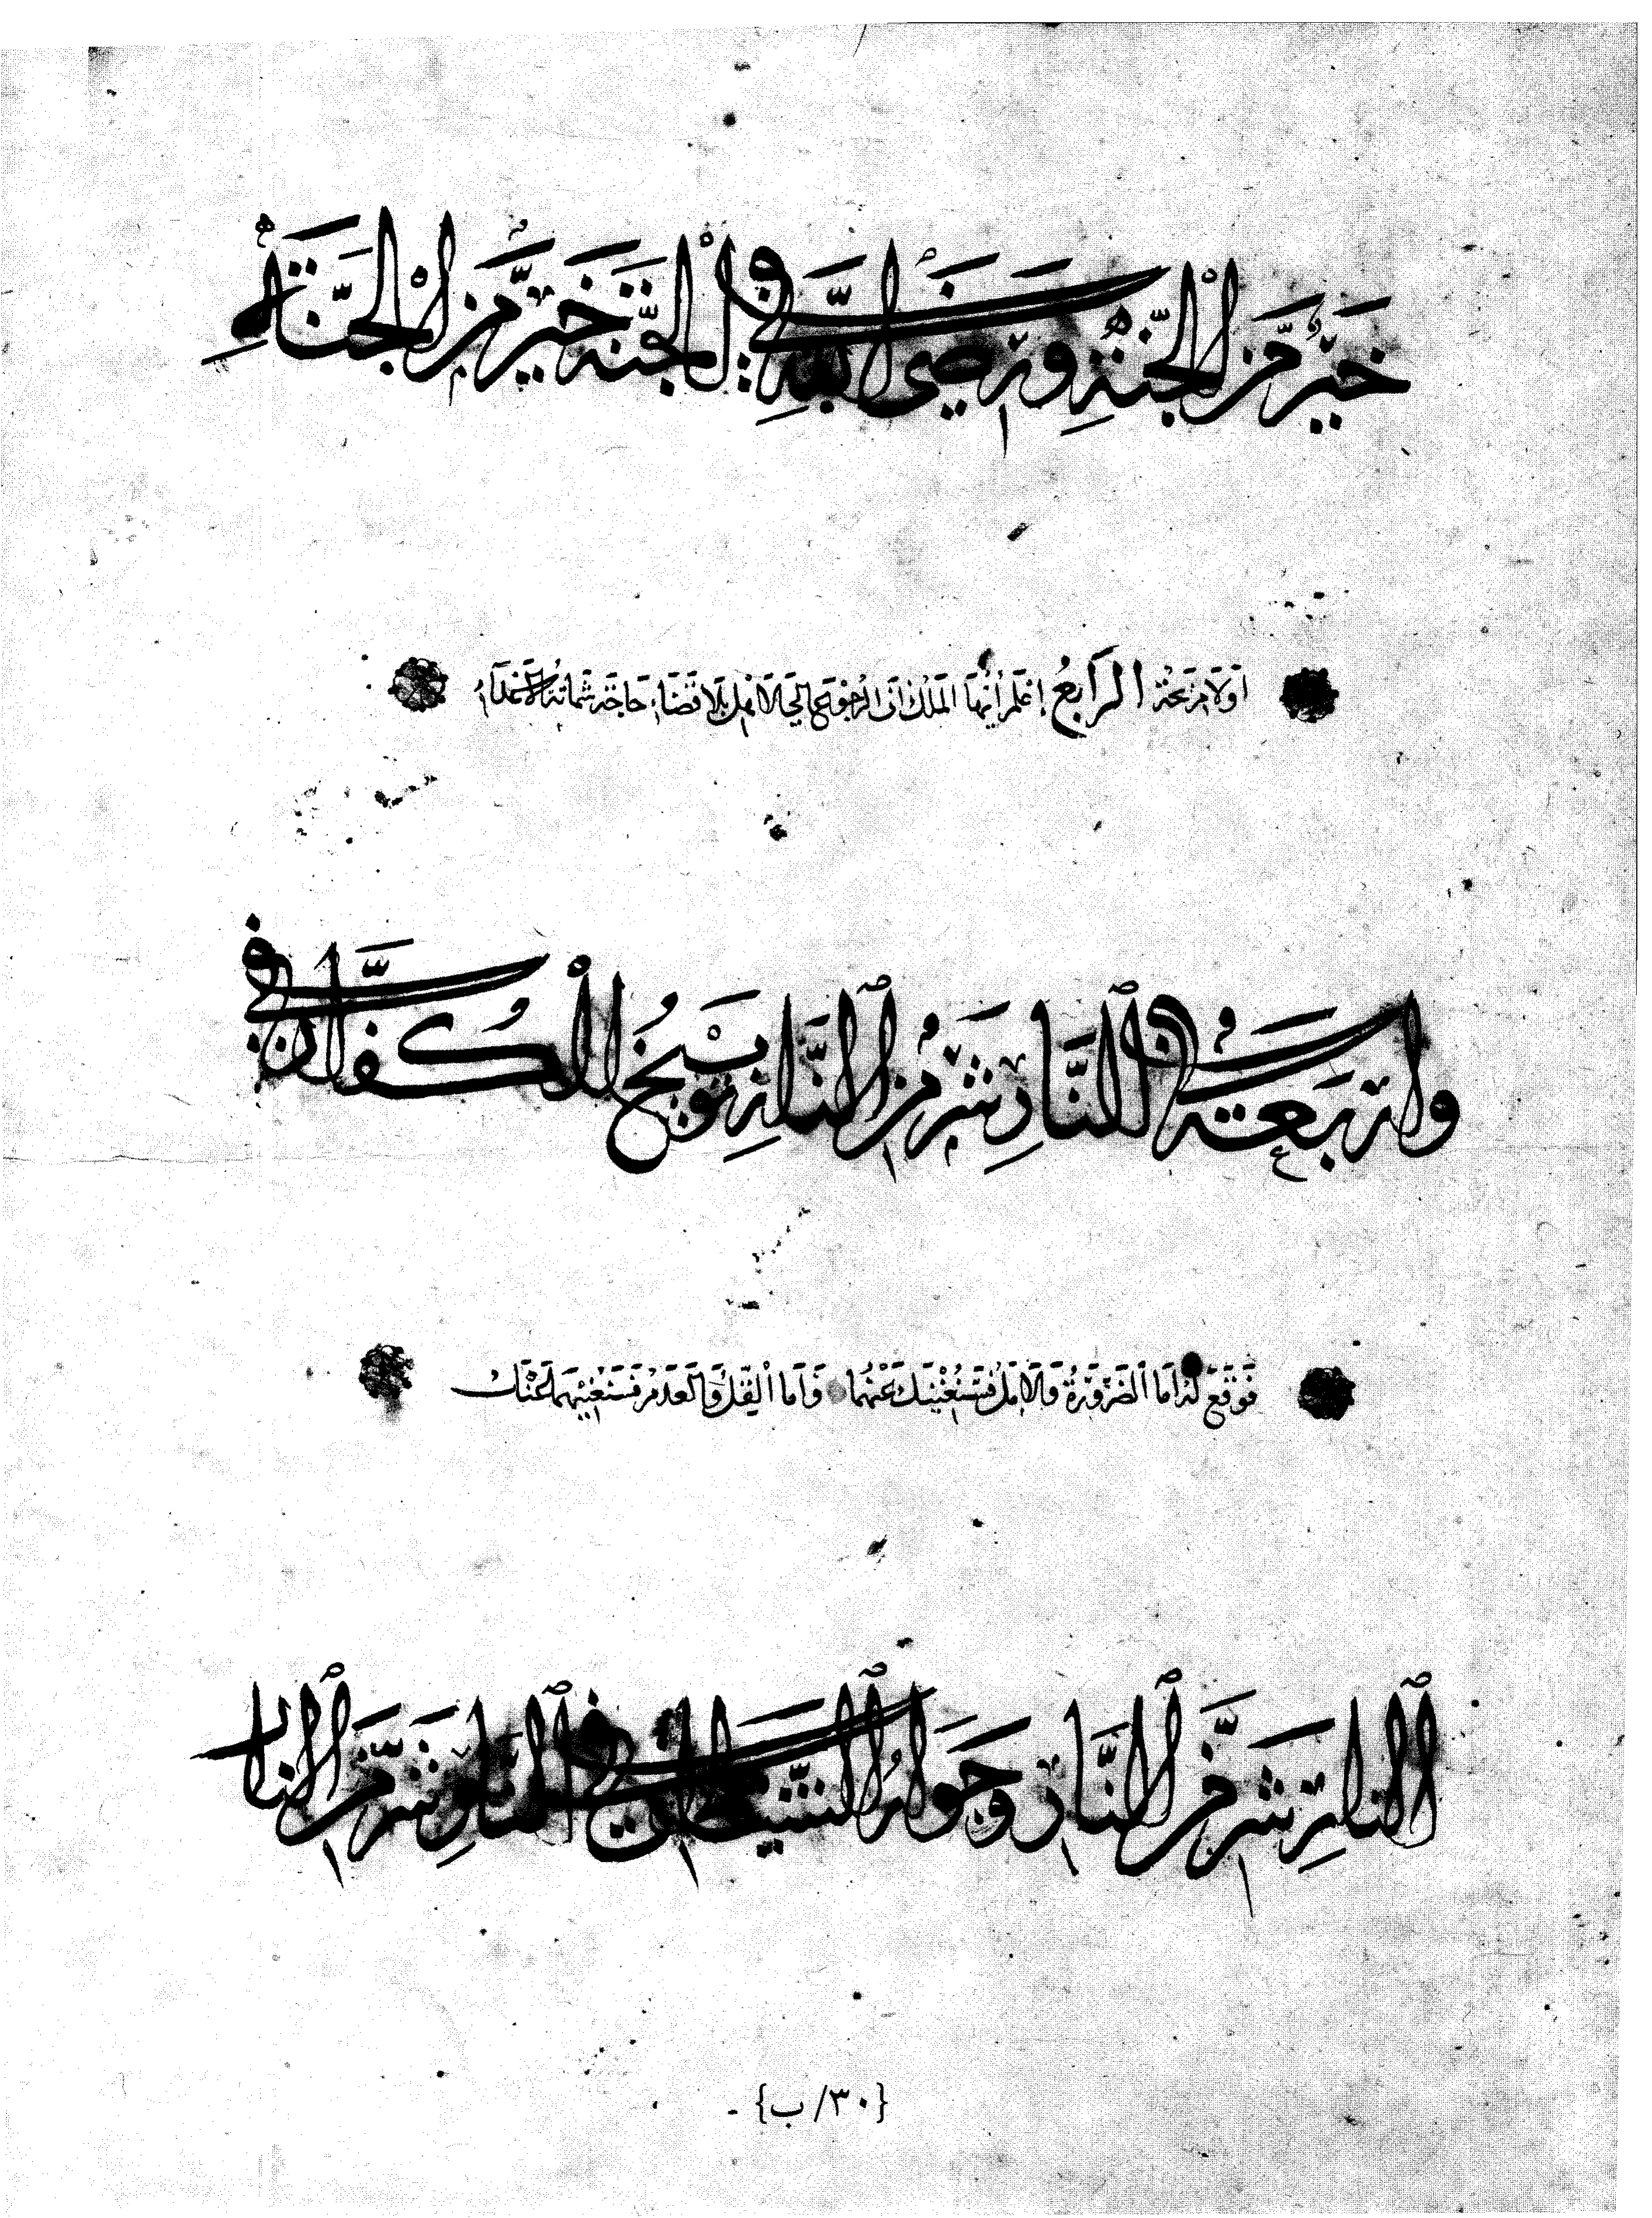 خَيْرٌ مِّنَ الْجَنَّةِ وَرِضَى اللَّهِ فِي الْجَنَّةِ خَيْرٌ مِّنَ الْجَنَّةِ
أولا من عنده الرَّابِعُ إعلم أيُّها الملك أن الرجوع الأمل بلا قضاء حاجة شماتة الأعداء
وَأَرْبَعَةٌ فِي النَّارِ شَرٌّ مِنَ النَّارِ تَوْبِيخُ الْكُفَّارِ فِي
فَوَقَّعَ له أما الضَّرورة والأمل فستغنيك عنهما وأما القل والعدم فستغنيهما عنك
النَّارِ شَرٌّ مِّنَ النَّارِ وَجِوَارُ الشَّيْطَانِ فِي النَّارِ شَرٌّ مِّنَ النَّارِ
{٣٠/ب}